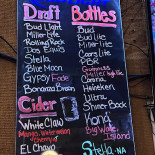 Draft
Bud Light
Miller Lite
Rolling Rock
Dos Equis
Stella
Blue Moon
Gypsy Fade
Bonanza Brown
Cider
White Claw
Mango, Watermelon
El Chavo
Bottles
Bud
Bud Lite
Miller Lite
Coors Lite
PBR
Guinness
Corona
Heineken
Ultra
Shiner Bock
Kona
Big Wave
Island
Stella-NA